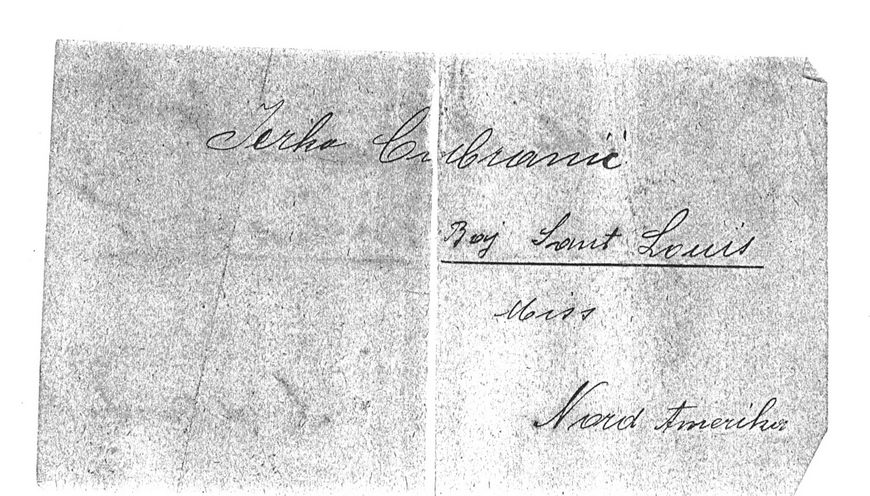 Jerko Cvibranić
Baj Sant Louis
Miss
Nord Amerika